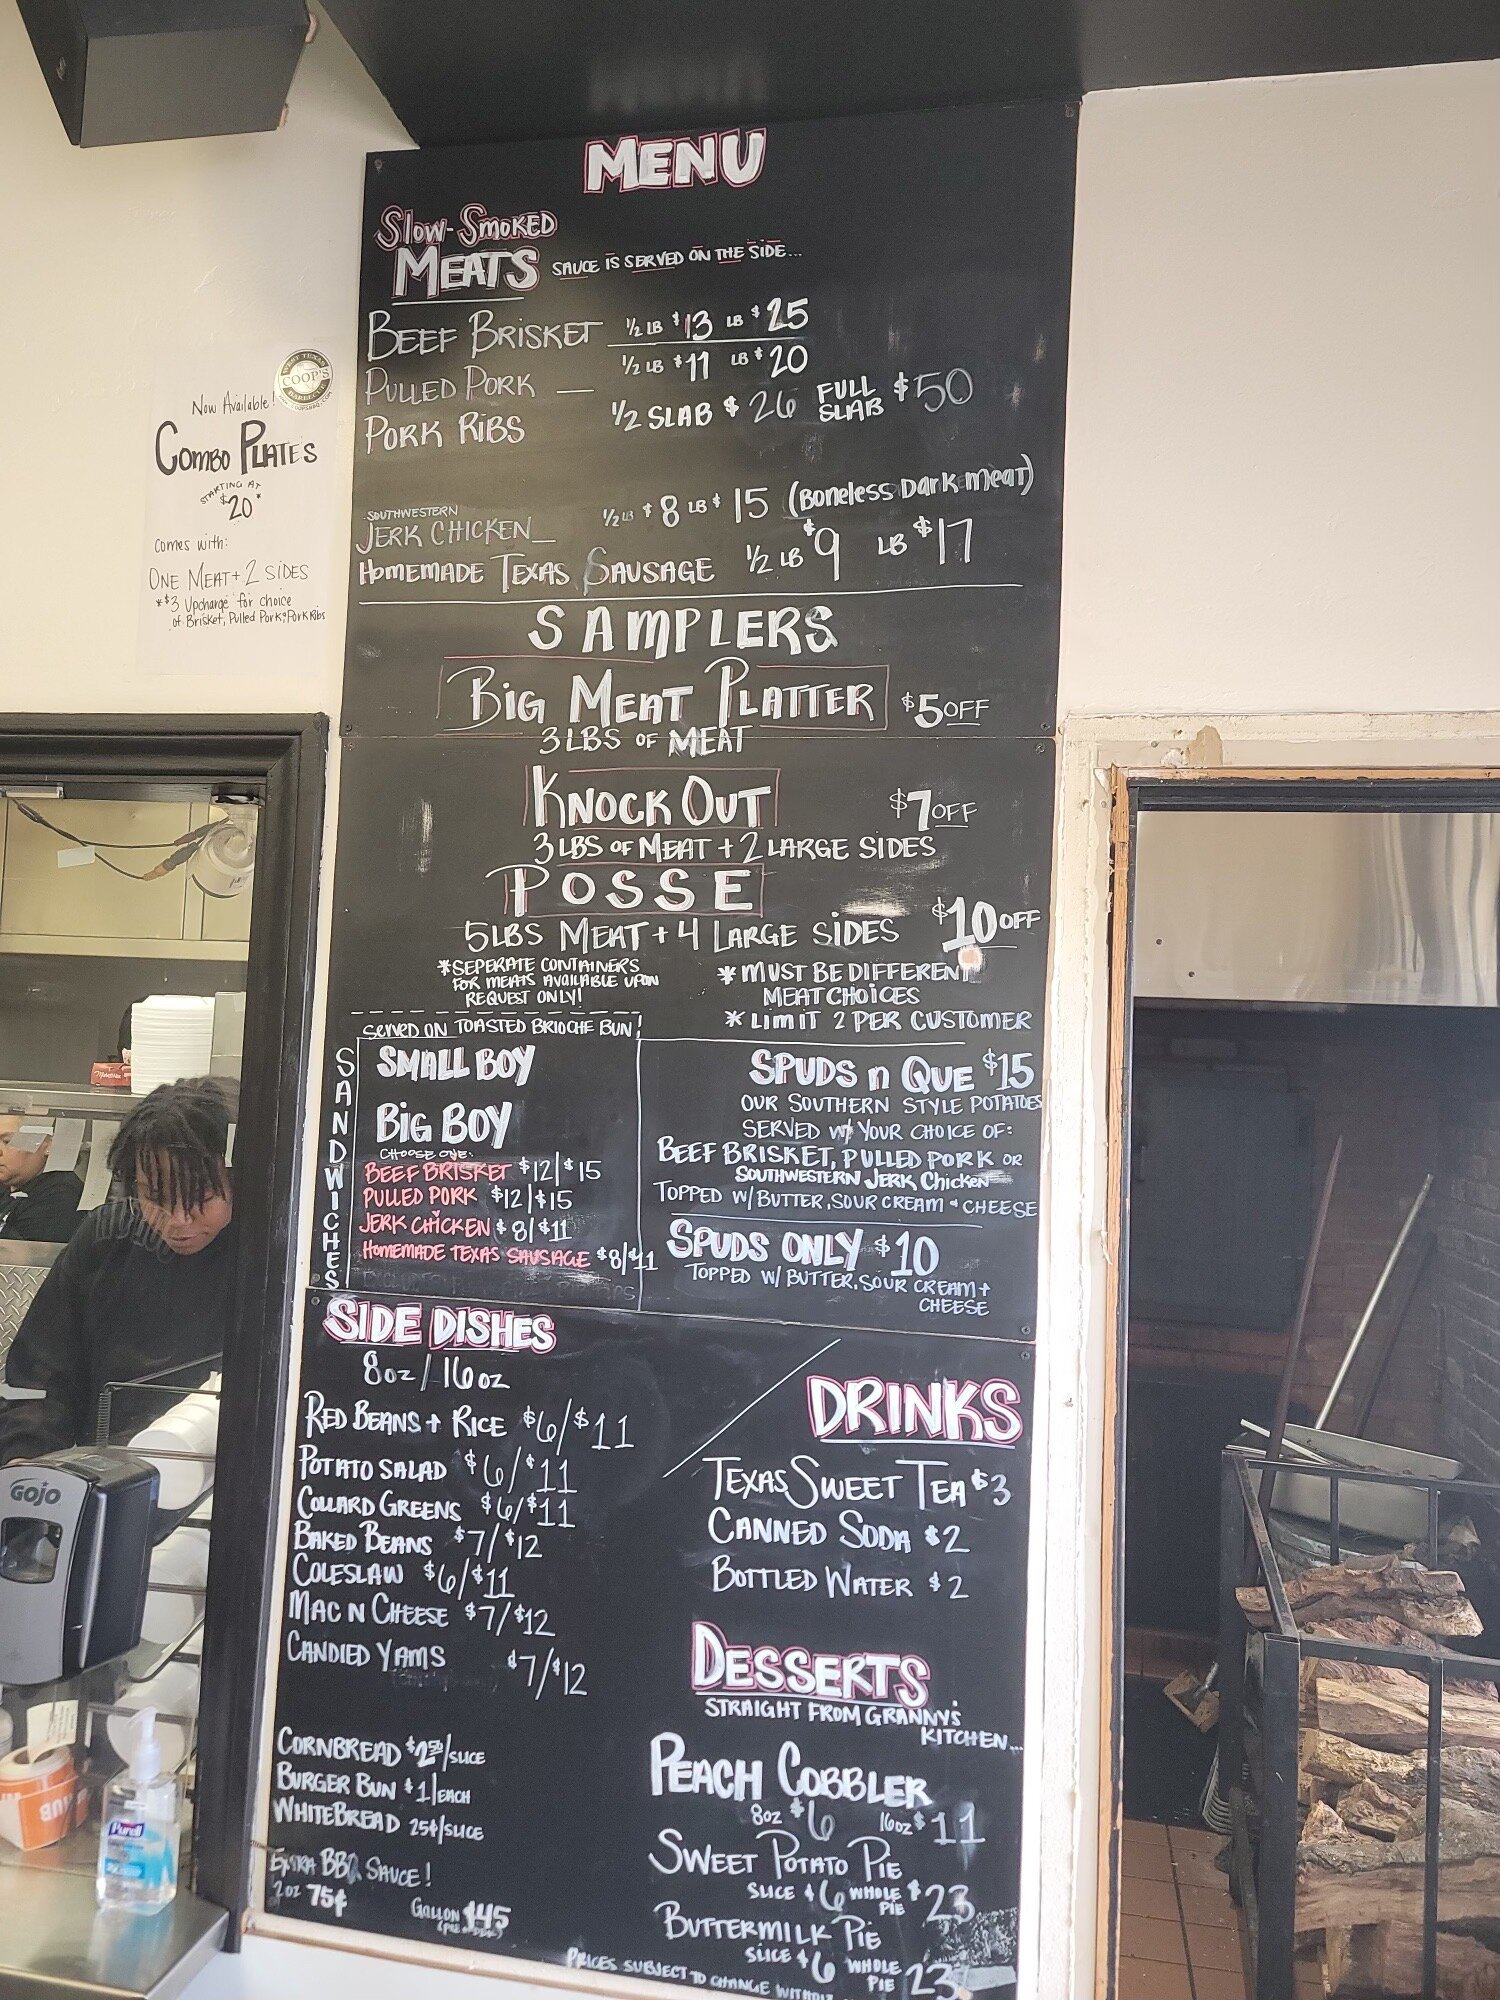 MENU
SLOW-SMOKED
MEATS SAUCE IS SERVED ON THE SIDE...
BEEF BRISKET 1/2 LB $13 LB $25
PULLED PORK — 1/2 LB $11 LB $20
PORK RIBS 1/2 SLAB $26 FULL SLAB $50
SOUTHWESTERN
JERK CHICKEN_ 1/2 LB $8 LB $15 (BONELESS DARK MEAT)
HOMEMADE TEXAS SAUSAGE 1/2 LB $9 LB $17
SAMPLERS
BIG MEAT PLATTER $5 OFF
3 LBS OF MEAT
KNOCK OUT $7 OFF
3 LBS OF MEAT + 2 LARGE SIDES
POSSE
5LBS MEAT + 4 LARGE SIDES $10 OFF
*SEPERATE CONTAINERS
FOR MEATS AVAILABLE UPON
REQUEST ONLY!
* MUST BE DIFFERENT
MEAT CHOICES
* LIMIT 2 PER CUSTOMER
SERVED ON TOASTED BRIOCHE BUN!
SANDWICHES
SMALL BOY
BIG BOY
CHOOSE ONE:
BEEF BRISKET $12|$15
PULLED PORK $12|$15
JERK CHICKEN $8/$11
HOMEMADE TEXAS SAUSAGE $8/$11
SPUDS n QUE $15
OUR SOUTHERN STYLE POTATOES
SERVED W/ YOUR CHOICE OF:
BEEF BRISKET, PULLED PORK OR
SOUTHWESTERN JERK CHICKEN
TOPPED W/ BUTTER, SOUR CREAM + CHEESE
SPUDS ONLY $10
TOPPED W/ BUTTER, SOUR CREAM +
CHEESE
SIDE DISHES
8oz / 16oz
RED BEANS + RICE $6/$11
POTATO SALAD $6/$11
COLLARD GREENS $6/$11
BAKED BEANS $7/$12
COLESLAW $6/$11
MAC N CHEESE $7/$12
CANDIED YAMS $7/$12
CORNBREAD $2.50/SLICE
BURGER BUN $1/EACH
WHITEBREAD 25¢/SLICE
EXTRA BBQ SAUCE!
2oz 75¢ GALLON $45
DRINKS
TEXAS SWEET TEA $3
CANNED SODA $2
BOTTLED WATER $2
DESSERTS
STRAIGHT FROM GRANNY'S
KITCHEN...
PEACH COBBLER
8oz $6 16oz $11
SWEET POTATO PIE
SLICE $6 WHOLE PIE $23
BUTTERMILK PIE
SLICE $6 WHOLE PIE 23
PRICES SUBJECT TO CHANGE
WEST TEXAS
COOP'S
BARBECUE
Now Available!
COMBO PLATES
STARTING AT
$20*
Comes with:
ONE MEAT + 2 SIDES
*$3 Upcharge for choice
of Brisket, Pulled Pork, Pork Ribs
GOJO
Purell